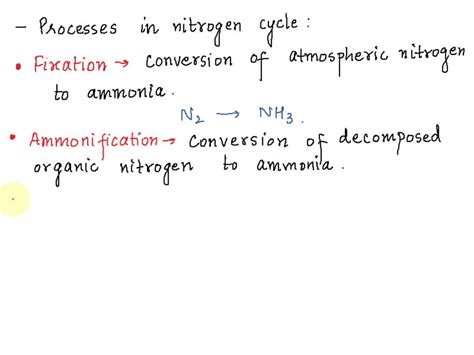 - Processes in nitrogen cycle :
• Fixation → conversion of atmospheric nitrogen
to ammonia.
N₂ → NH₃.
• Ammonification → conversion of decomposed
organic nitrogen to ammonia.